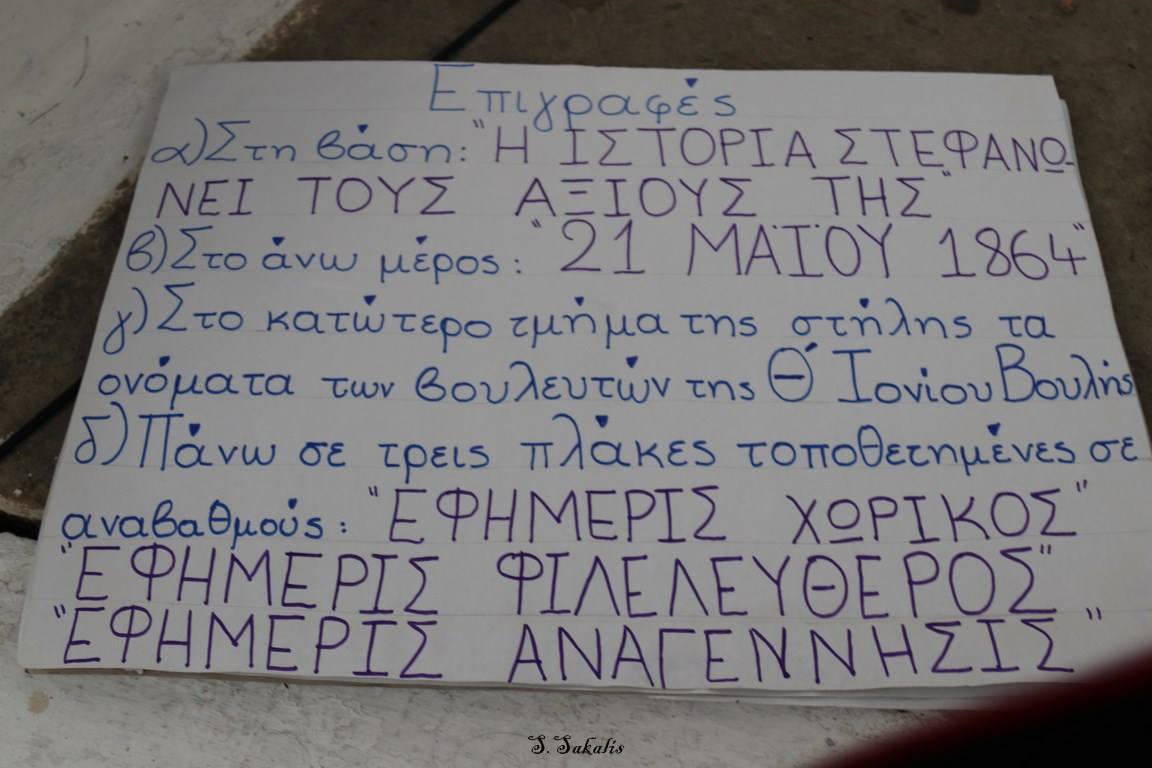 Επιγραφές
α) Στη βάση: "Η ΙΣΤΟΡΙΑ ΣΤΕΦΑΝΩ
ΝΕΙ ΤΟΥΣ ΑΞΙΟΥΣ ΤΗΣ"
β) Στο άνω μέρος: "21 ΜΑΪΟΥ 1864"
γ) Στο κατώτερο τμήμα της στήλης τα
ονόματα των βουλευτών της Θ΄ Ιονίου Βουλής
δ) Πάνω σε τρεις πλάκες τοποθετημένες σε
αναβαθμούς: "ΕΦΗΜΕΡΙΣ ΧΩΡΙΚΟΣ"
"ΕΦΗΜΕΡΙΣ ΦΙΛΕΛΕΥΘΕΡΟΣ"
"ΕΦΗΜΕΡΙΣ ΑΝΑΓΕΝΝΗΣΙΣ"
S. Sakalis